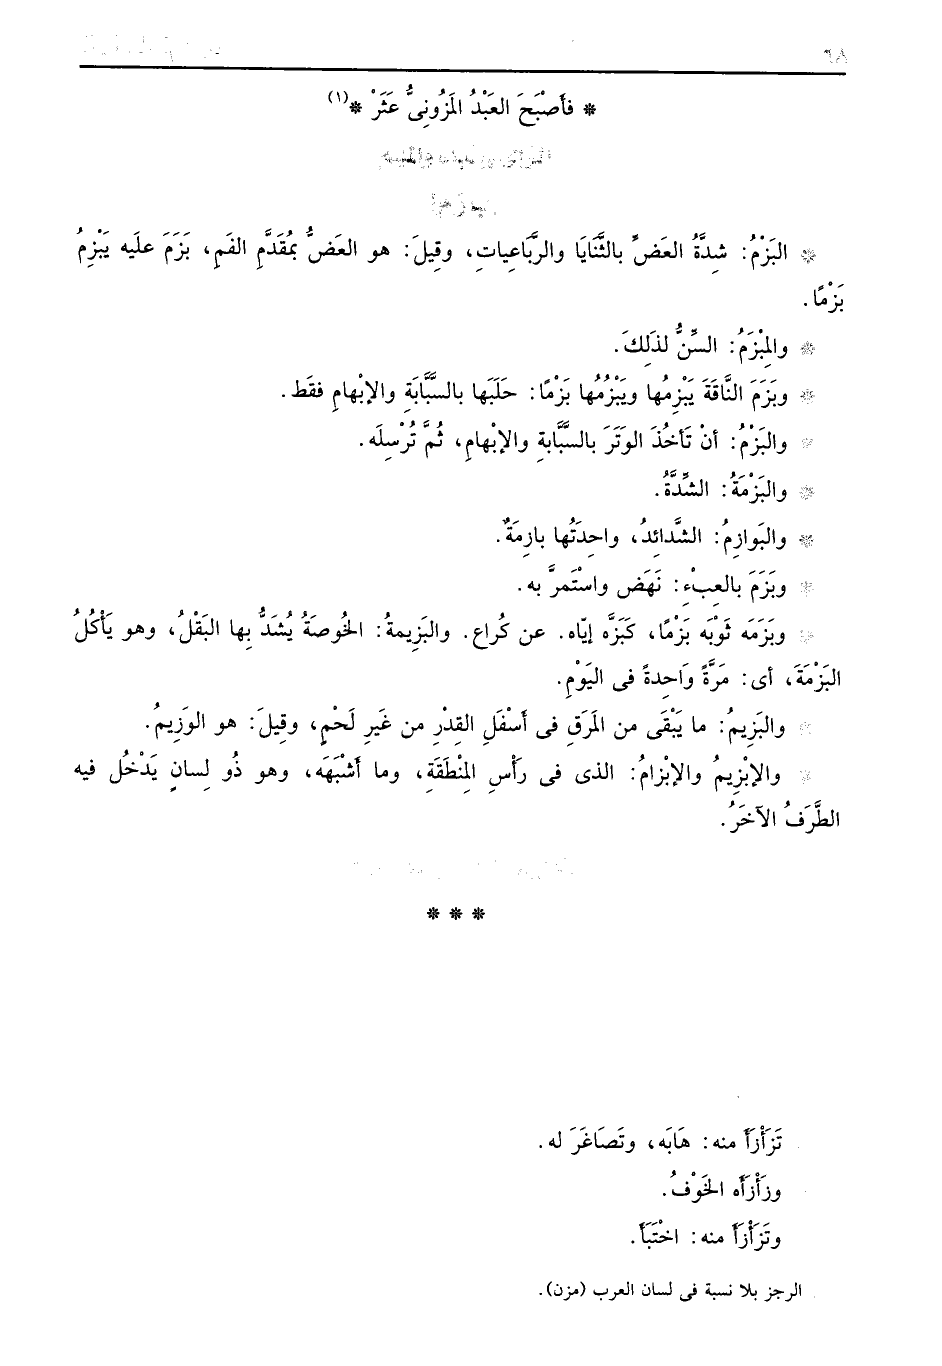 ٨٦
* فأَصْبَحَ العَبْدُ المَزُونىُّ عَثَرْ *(١)
* البَزْمُ: شِدَّةُ العَضِّ بالثَّنَايَا والرَّبَاعِيات، وقِيلَ: هو العَضُّ بمُقَدَّمِ الفَمِ، بَزَمَ علَيه يَبْزِمُ
بَزْمًا.
* والمِبْزَمُ: السِّنُّ لذَلِكَ.
* وبَزَمَ النَّاقَةَ يَبْزِمُها ويَبْزُمُها بَزْمًا: حَلَبَها بالسَّبَّابَةِ والإبْهامِ فقَط.
* والبَزْمُ: أنْ تَأخُذَ الوَتَرَ بالسَّبَّابةِ والإبْهامِ، ثُمَّ تُرْسِلَه.
* والبَزْمَةُ: الشِّدَّةُ.
* والبَوازِمُ: الشَّدائدُ، واحِدَتُها بازِمَةٌ.
* وبَزَمَ بالعِبْءِ: نَهَض واسْتَمرَّ به.
* وبَزَمَه ثَوْبَه بَزْمًا، كَبَزَّه إيّاه. عن كُراع. والبَزِيمةُ: الخُوصَةُ يُشَدُّ بِها البَقْلُ، وهو يَأْكُلُ
البَزْمَةَ، أى: مَرَّةً وَاحِدةً فى اليَوْمِ.
* والبَزِيمُ: ما يَبْقَى من المَرَقِ فى أَسْفَلِ القِدْرِ من غَيرِ لَحْمٍ، وقِيلَ: هو الوَزِيمُ.
* والإبْزِيمُ والإبْزامُ: الذى فى رَأْسِ المِنْطَقَةِ، وما أَشْبَهَه، وهو ذُو لِسانٍ يَدْخُل فيه
الطَّرَفُ الآخَرُ.
* * *
تَزَأْزأَ منه: هَابَه، وتَصَاغَرَ له.
وزَأْزأَه الخَوْفُ.
وتَزَأْزأَ منه: اخْتَبَأَ.
الرجز بلا نسبة فى لسان العرب (مزن).